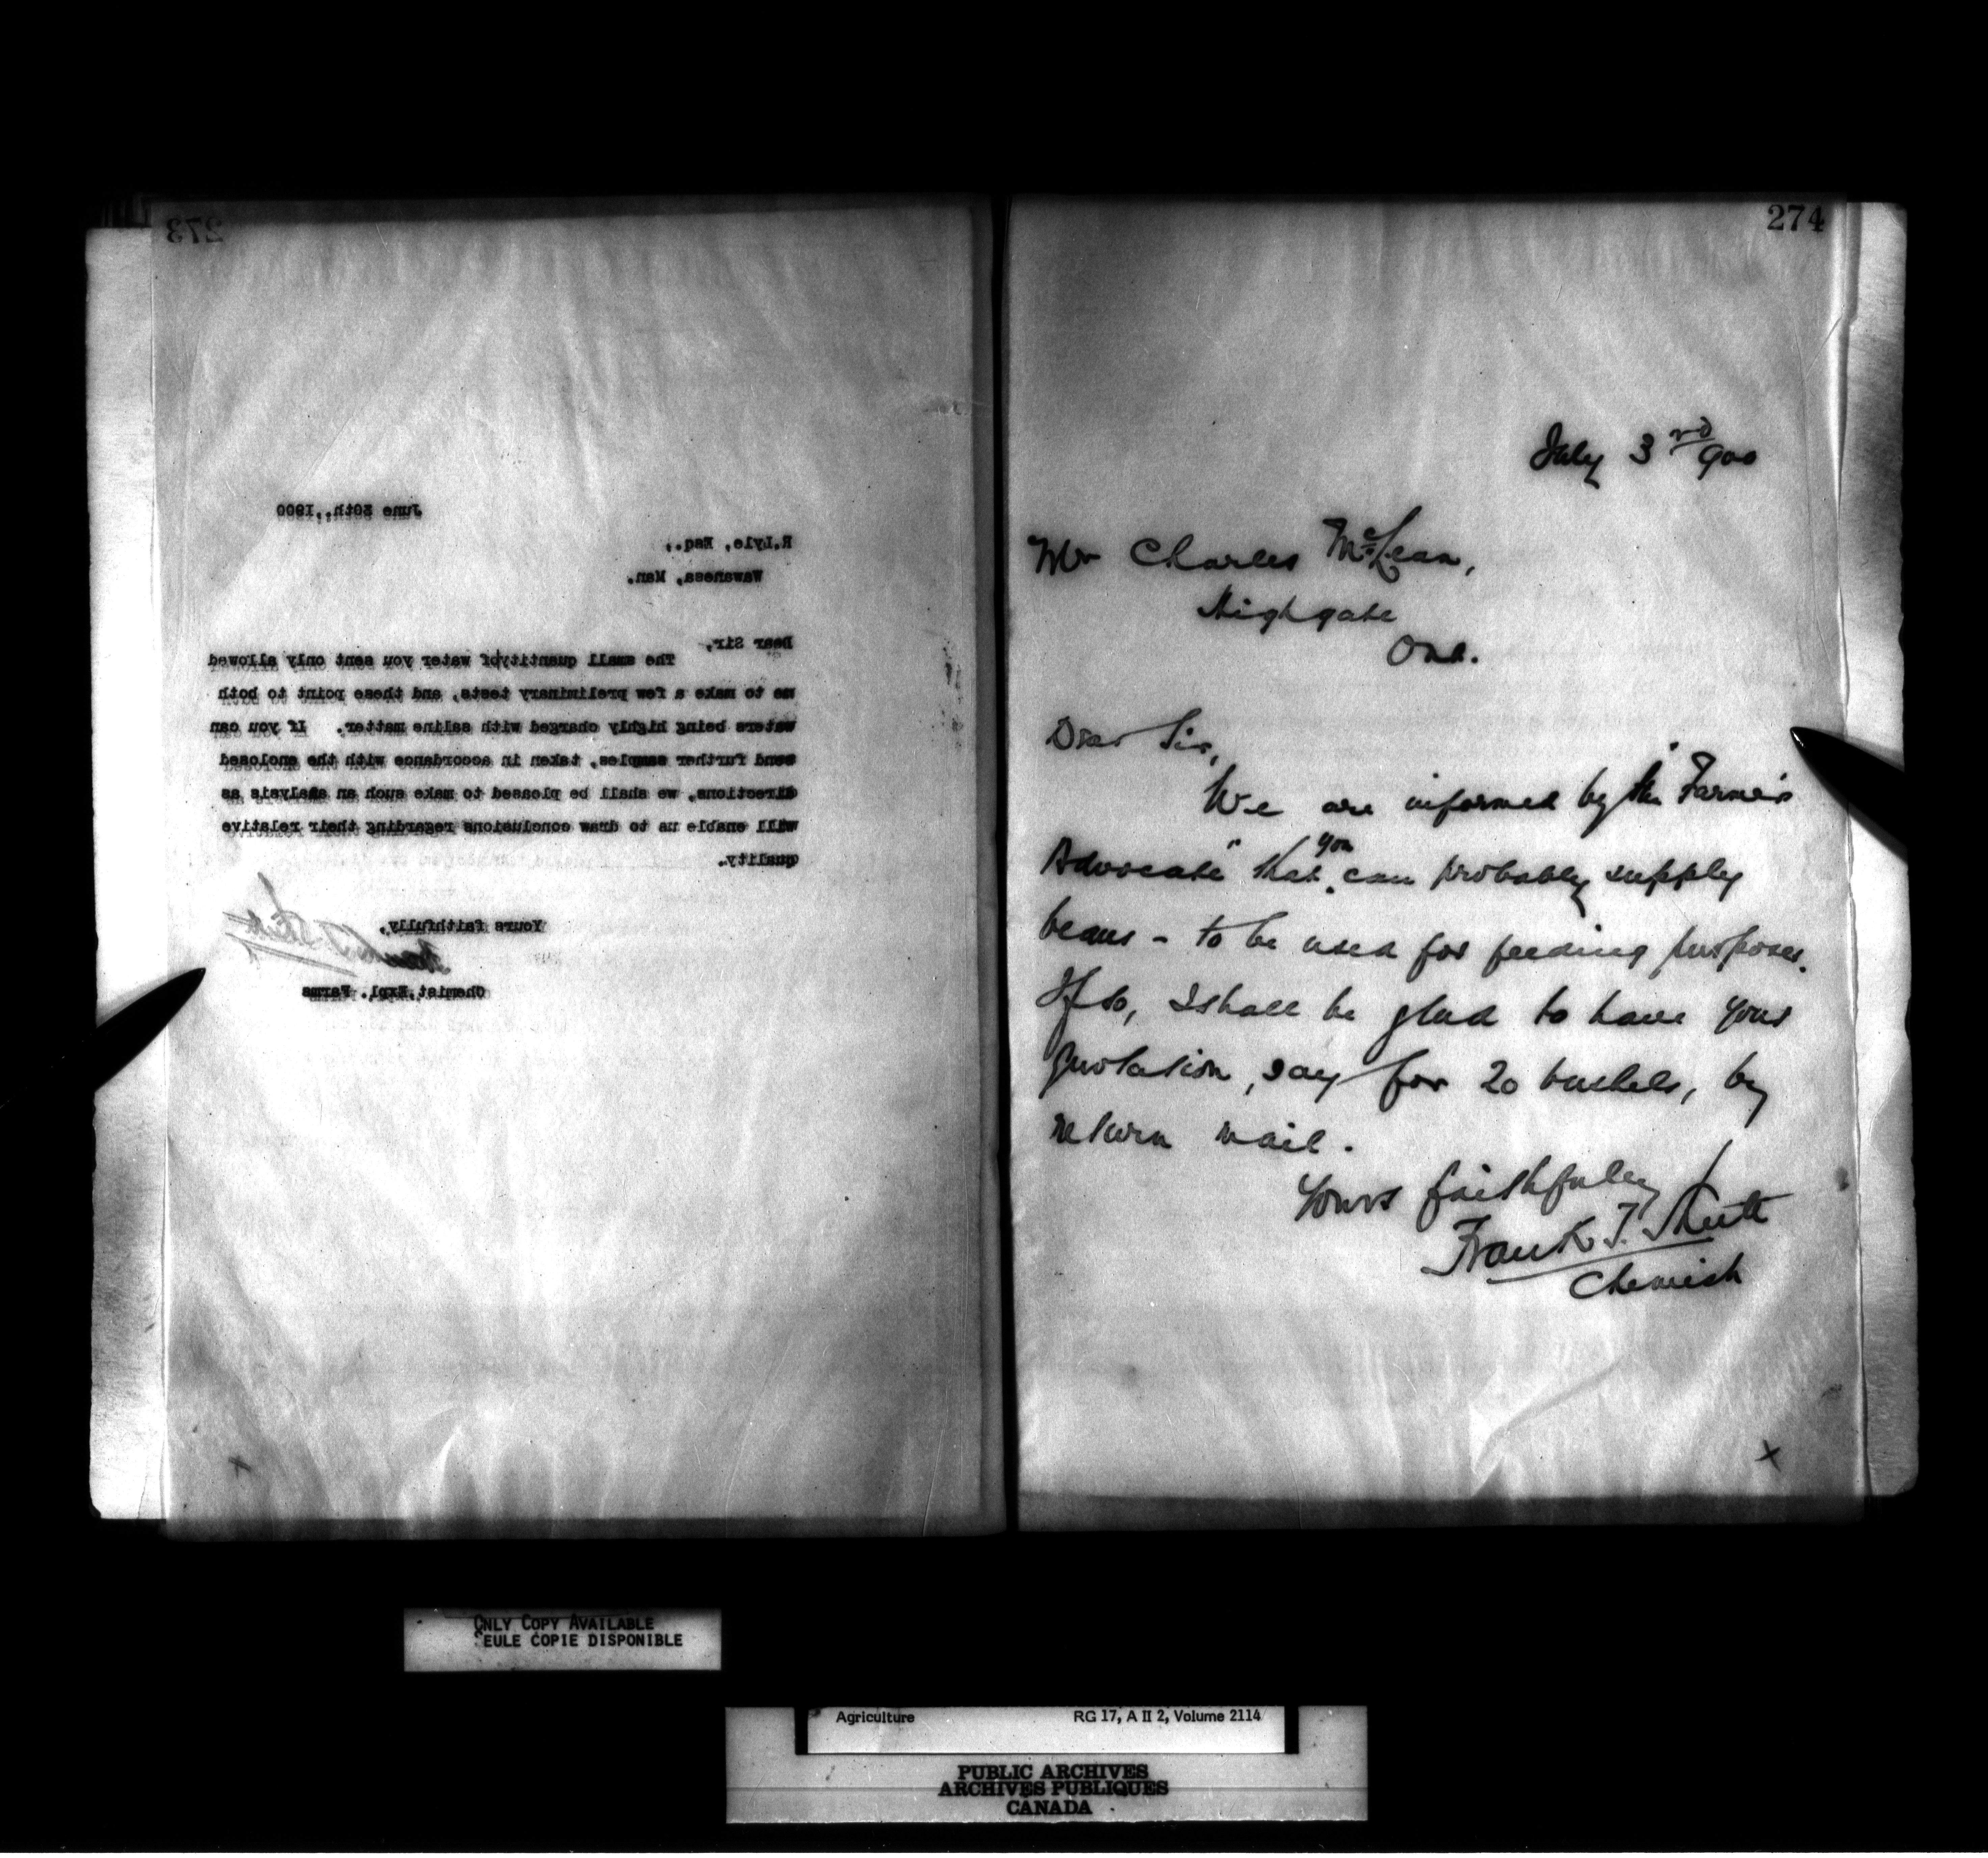 273
June 30th,.1900
R.Lyle, Esq.,
Wawanesa, Man.
Dear Sir,
The small quantity of water you sent only allowed
me to make a few preliminary tests, and these point to both
waters being highly charged with saline matter. If you can
send further samples, taken in accordance with the enclosed
directions, we shall be pleased to make such an analysis as
will enable us to draw conclusions regarding their relative
quality.
Yours faithfully,
Frank T. Shutt
Chemist, Expl. Farms
274
July 3rd 900
Mr Charles McLean,
Highgate
Ont.
Dear Sir,
We are informed by "the Farmer's
Advocate" that you can probably supply
beans - to be used for feeding purposes.
If so, I shall be glad to have your
quotation, say for 20 bushels, by
return mail.
Yours faithfully
Frank T. Shutt
Chemist
X
ONLY COPY AVAILABLE
SEULE COPIE DISPONIBLE
Agriculture RG 17, A II 2, Volume 2114
PUBLIC ARCHIVES
ARCHIVES PUBLIQUES
CANADA